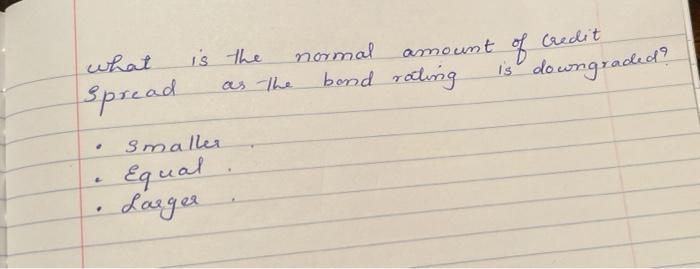 what is the normal amount of credit
spread as the bond rating is downgraded?
• smaller.
• Equal.
• Larger.